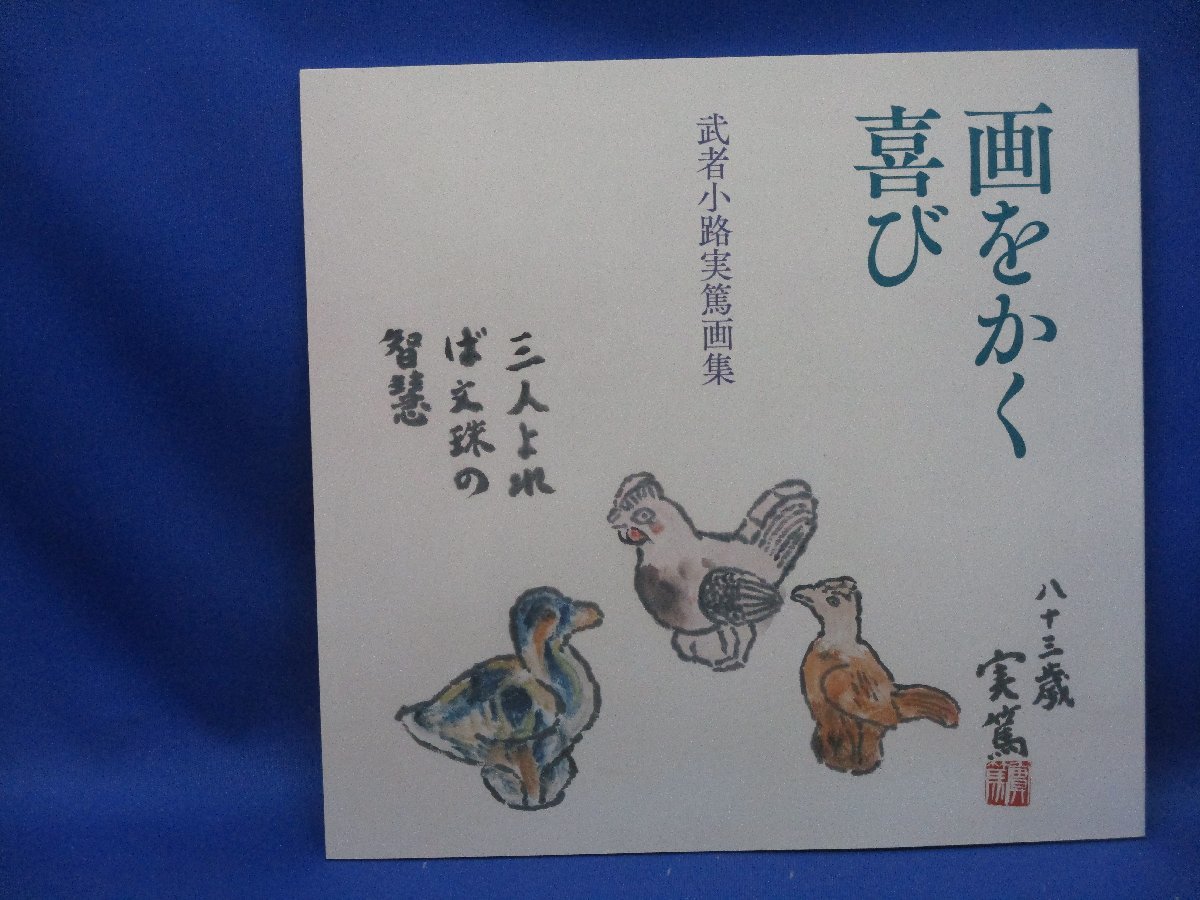 画をかく
喜び
武者小路実篤画集
三人よれ
ば文珠の
智慧
八十三歳
実篤